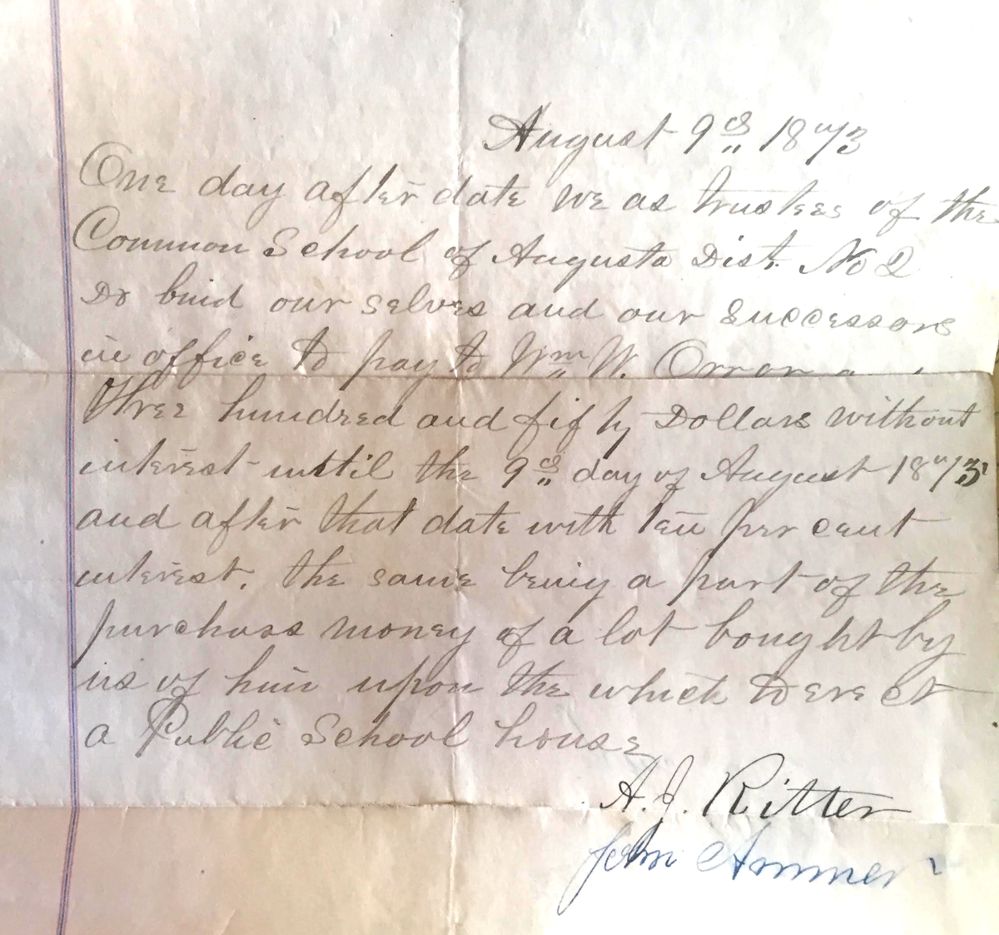 August 9th 1873
One day after date we as trustees of the
Common School of Augusta Dist. No 2
Do bind our selves and our successors
in office to pay to Wm W. Orr
three hundred and fifty Dollars without
interest until the 9th day of August 1873
and after that date with ten per cent
interest. the same being a part of the
purchass money of a lot bought by
us of him upon the which to erect
a Public School house
A. J. Ritter
John Ammer